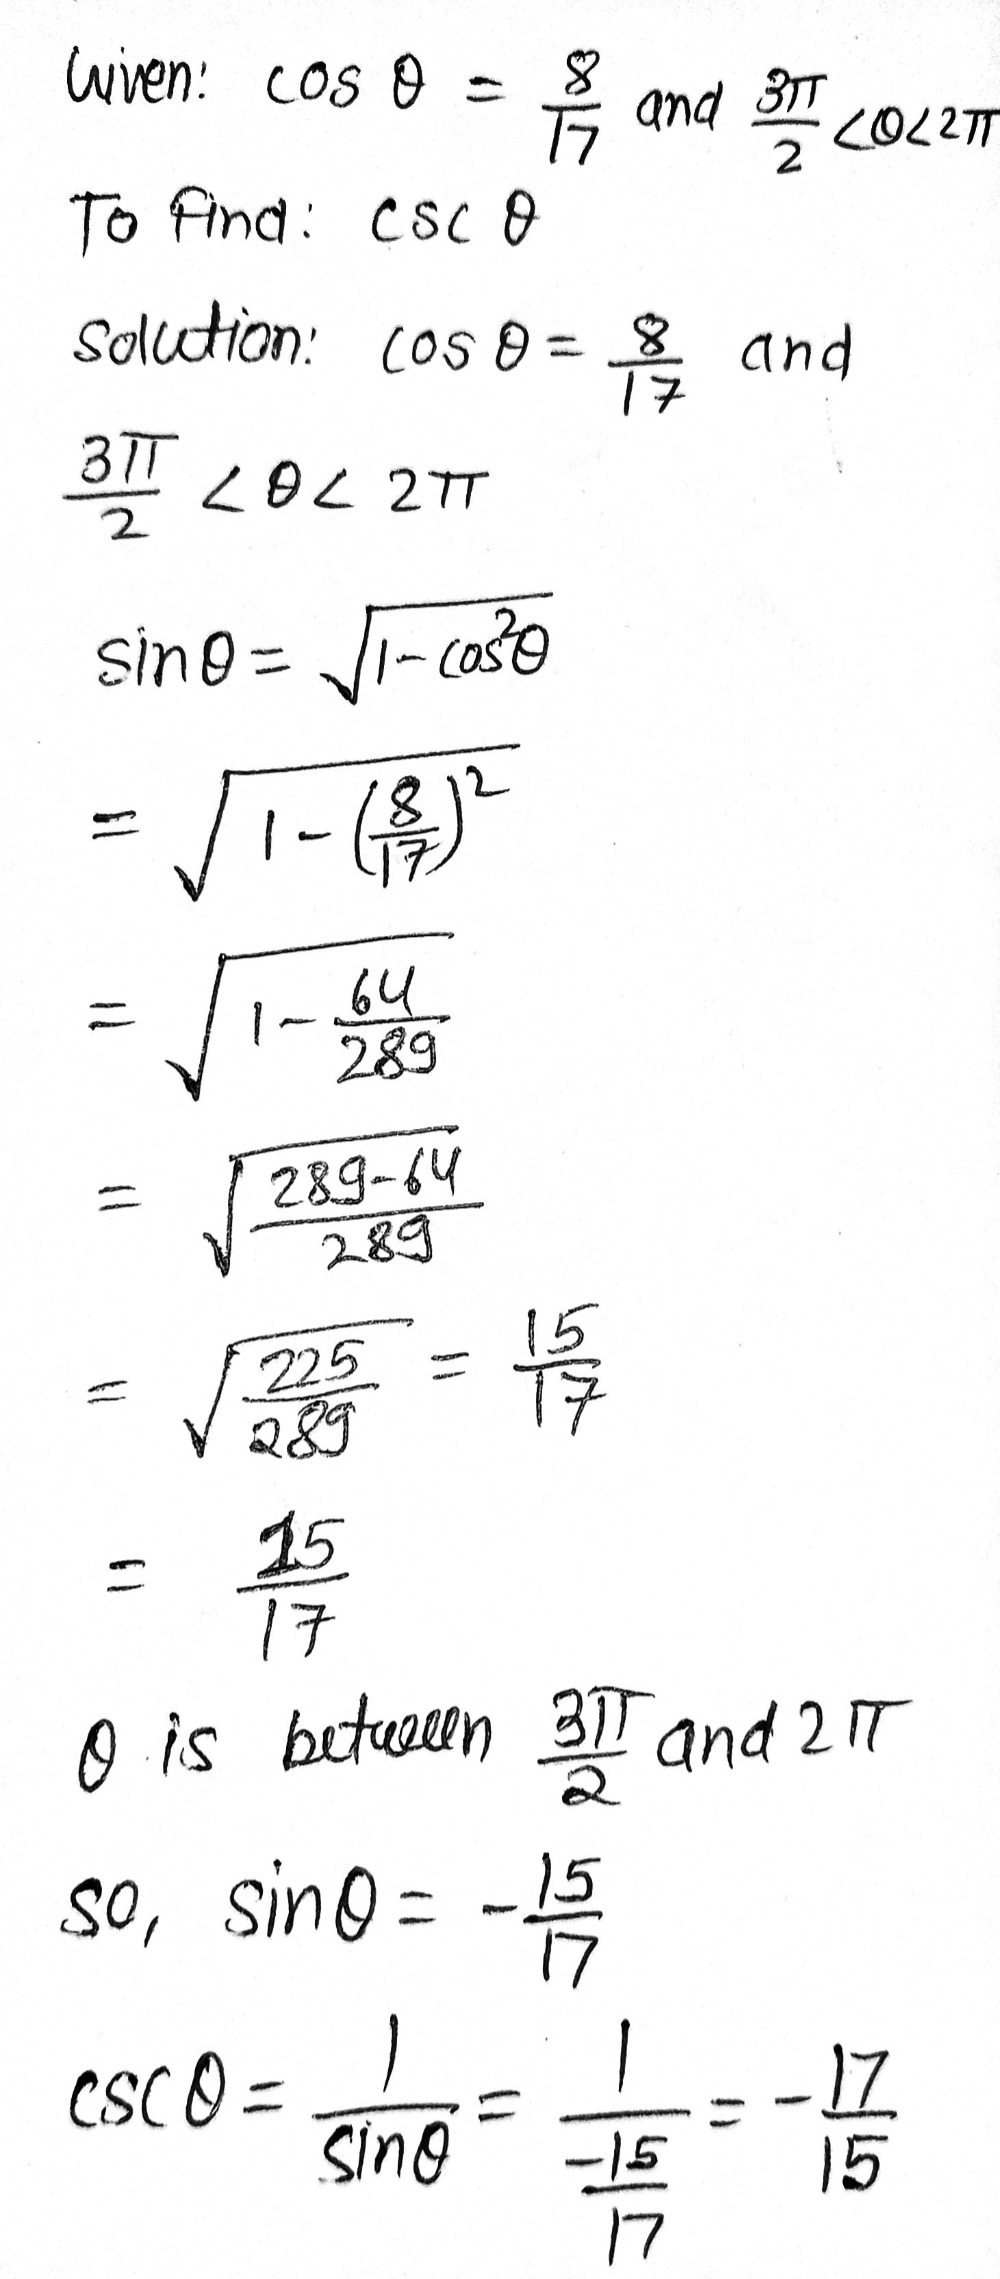 Given: cos θ = 8/17 and 3π/2 <θ<2π
To find: csc θ
Solution: cos θ = 8/17 and
3π/2 < θ < 2π
sinθ = √(1-cos²θ)
= √(1-(8/17)²)
= √(1-64/289)
= √((289-64)/289)
= √(225/289) = 15/17
= 15/17
θ is between 3π/2 and 2π
so, sinθ = -15/17
cscθ = 1/sinθ = 1/(-15/17) = -17/15